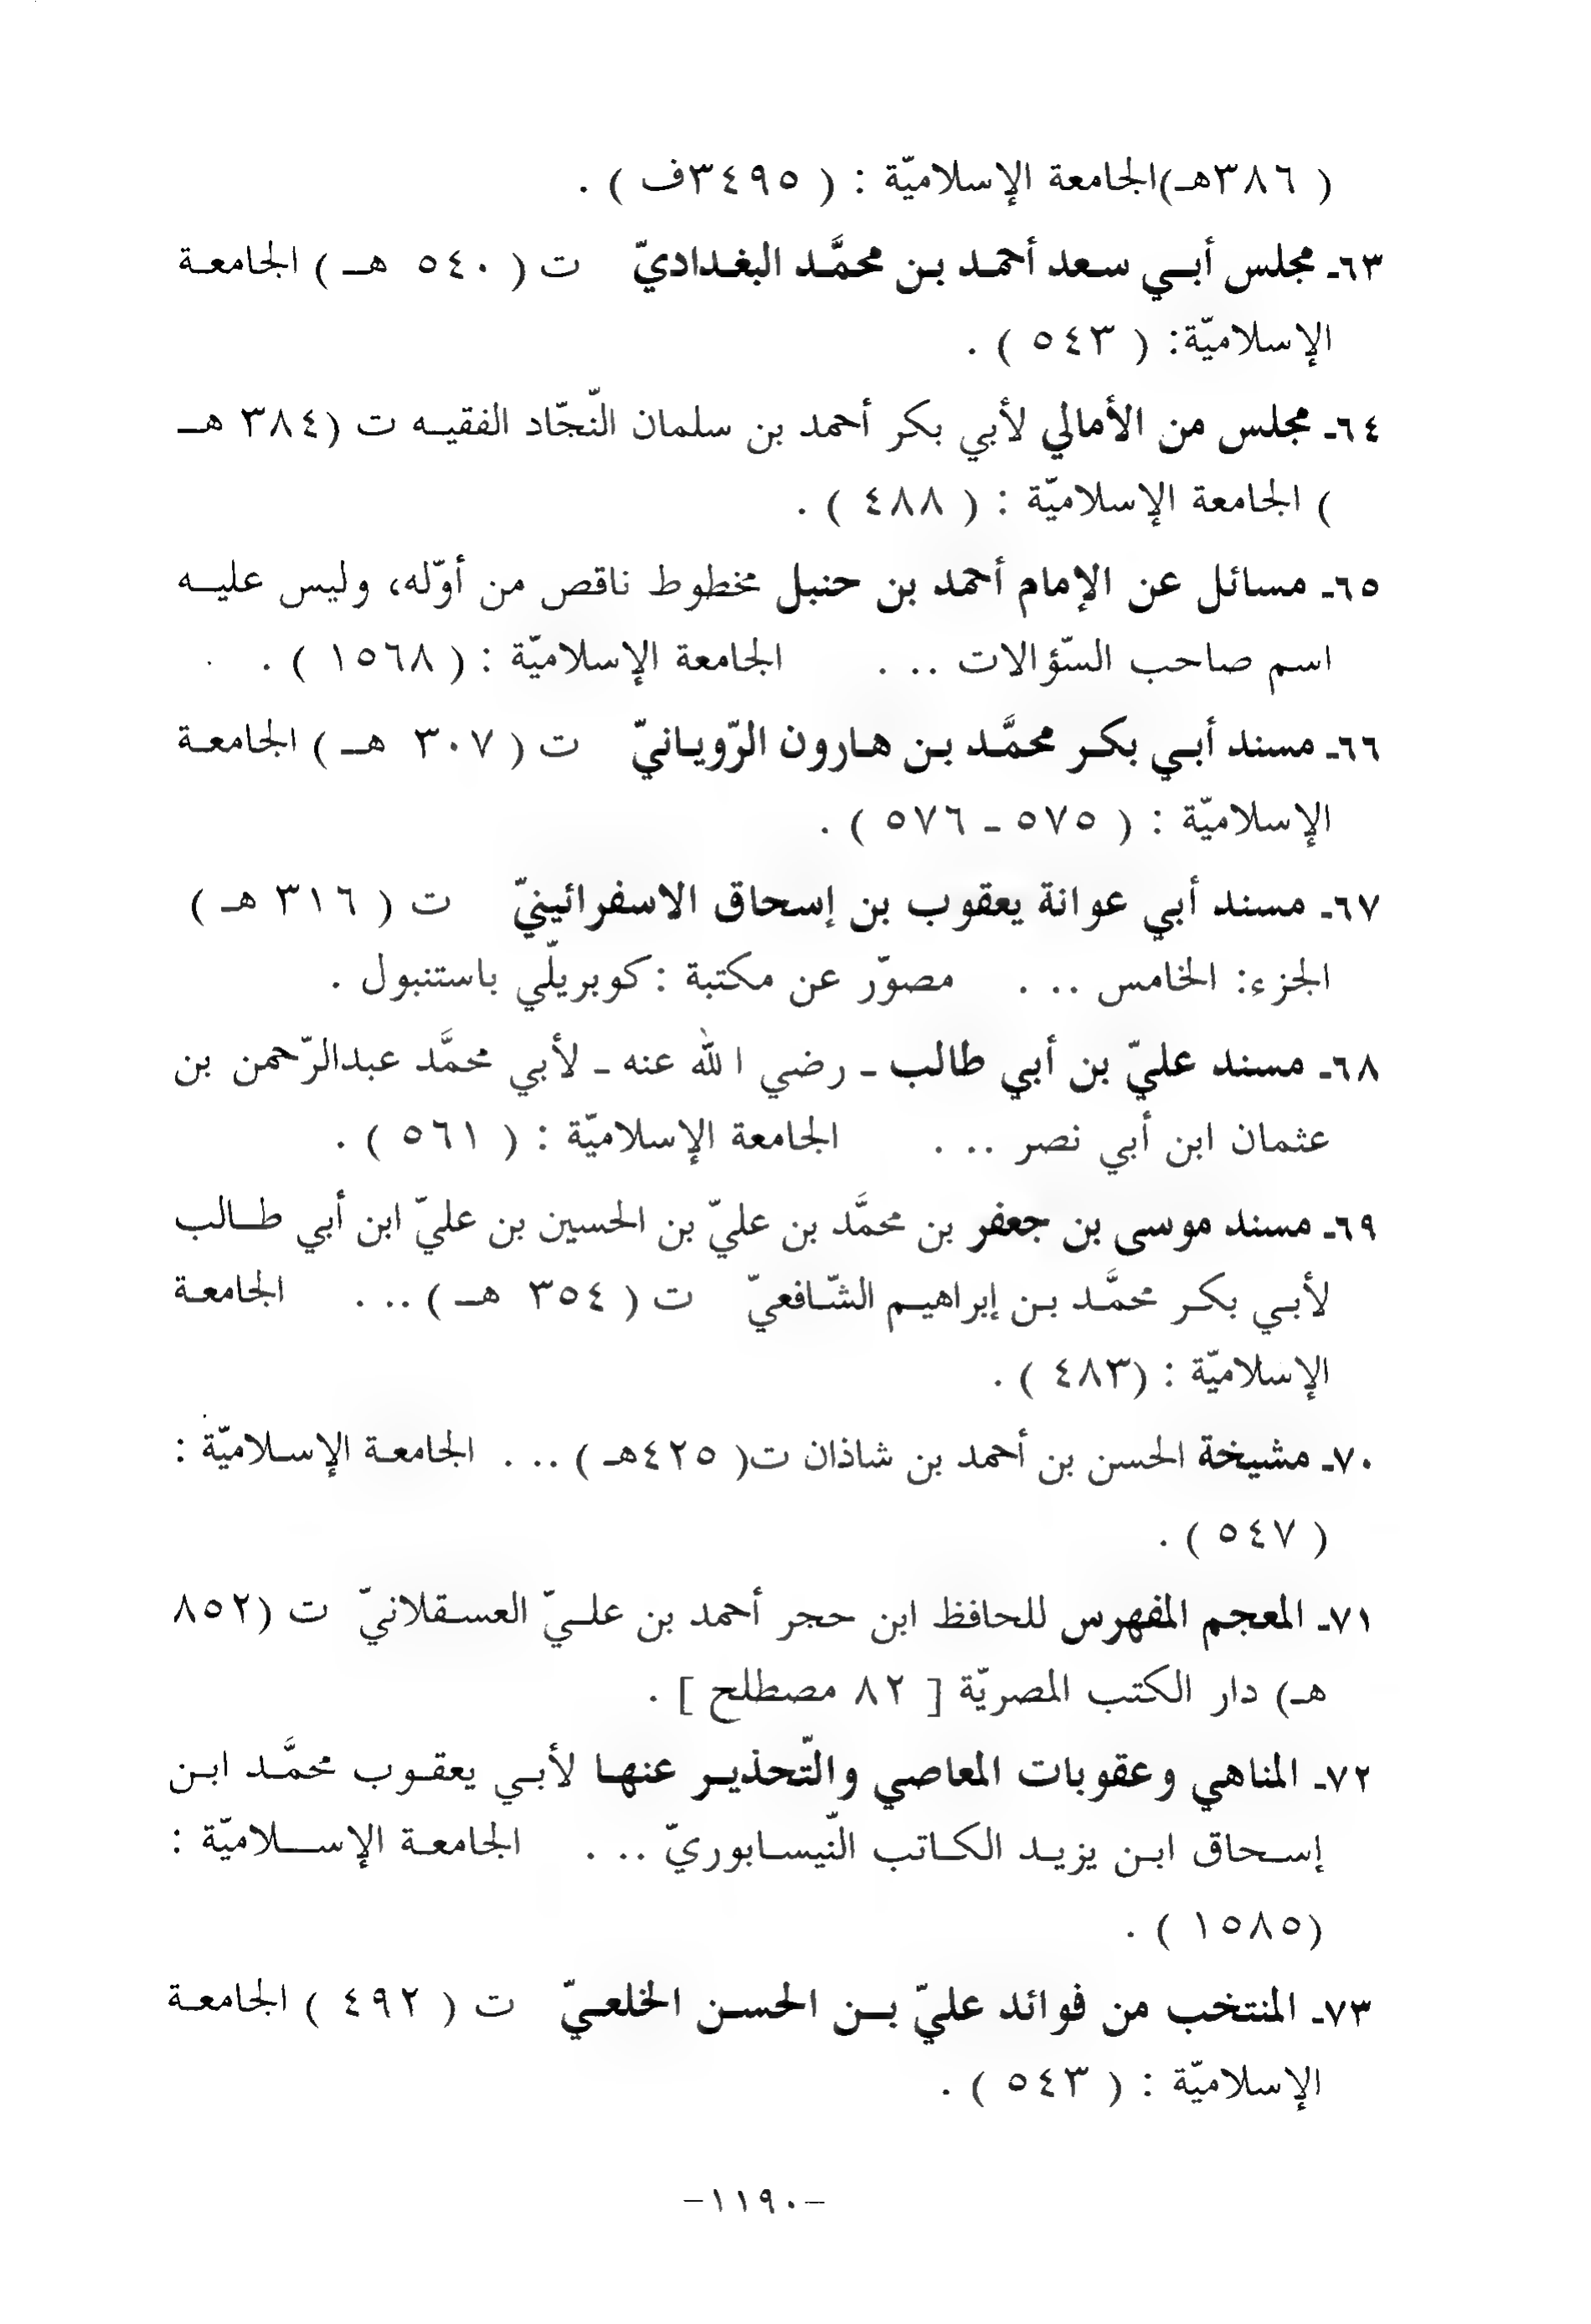 ( ٣٨٦هـ)الجامعة الإسلاميّة : ( ٣٤٩٥ف ) .
٦٣ـ مجلس أبـي سعد أحمد بن محمَّد البغداديّ ت ( ٥٤٠ هـ ) الجامعة
الإسلاميّة: ( ٥٤٣ ) .
٦٤ـ مجلس من الأمالي لأبي بكر أحمد بن سلمان النّجّاد الفقيه ت (٣٨٤ هـ
) الجامعة الإسلاميّة : ( ٤٨٨ ) .
٦٥ـ مسائل عن الإمام أحمد بن حنبل مخطوط ناقص من أوّله، وليس عليه
اسم صاحب السّؤالات ... الجامعة الإسلاميّة : ( ١٥٦٨ ) .
٦٦ـ مسند أبـي بكر محمَّد بن هارون الرّويانيّ ت ( ٣٠٧ هـ ) الجامعة
الإسلاميّة : ( ٥٧٥ ـ ٥٧٦ ) .
٦٧ـ مسند أبي عوانة يعقوب بن إسحاق الاسفرائينيّ ت ( ٣١٦ هـ )
الجزء: الخامس ... مصوّر عن مكتبة : كوبريلّي باستنبول .
٦٨ـ مسند عليّ بن أبي طالب ـ رضي الله عنه ـ لأبي محمَّد عبدالرّحمن بن
عثمان ابن أبي نصر ... الجامعة الإسلاميّة : ( ٥٦١ ) .
٦٩ـ مسند موسى بن جعفر بن محمَّد بن عليّ بن الحسين بن عليّ ابن أبي طالب
لأبـي بكر محمَّد بن إبراهيم الشّافعيّ ت ( ٣٥٤ هـ ) ... الجامعة
الإسلاميّة : (٤٨٣ ) .
٧٠ـ مشيخة الحسن بن أحمد بن شاذان ت( ٤٢٥هـ ) ... الجامعة الإسلاميّة :
( ٥٤٧ ) .
٧١ـ المعجم المفهرس للحافظ ابن حجر أحمد بن علـيّ العسقلانيّ ت (٨٥٢
هـ) دار الكتب المصريّة [ ٨٢ مصطلح ] .
٧٢ـ المناهي وعقوبات المعاصي والتّحذير عنها لأبـي يعقوب محمَّد ابن
إسحاق ابن يزيد الكاتب النّيسابوريّ ... الجامعة الإسلاميّة :
(١٥٨٥ ) .
٧٣ـ المنتخب من فوائد عليّ بن الحسن الخلعيّ ت ( ٤٩٢ ) الجامعة
الإسلاميّة : ( ٥٤٣ ) .
–١١٩٠–